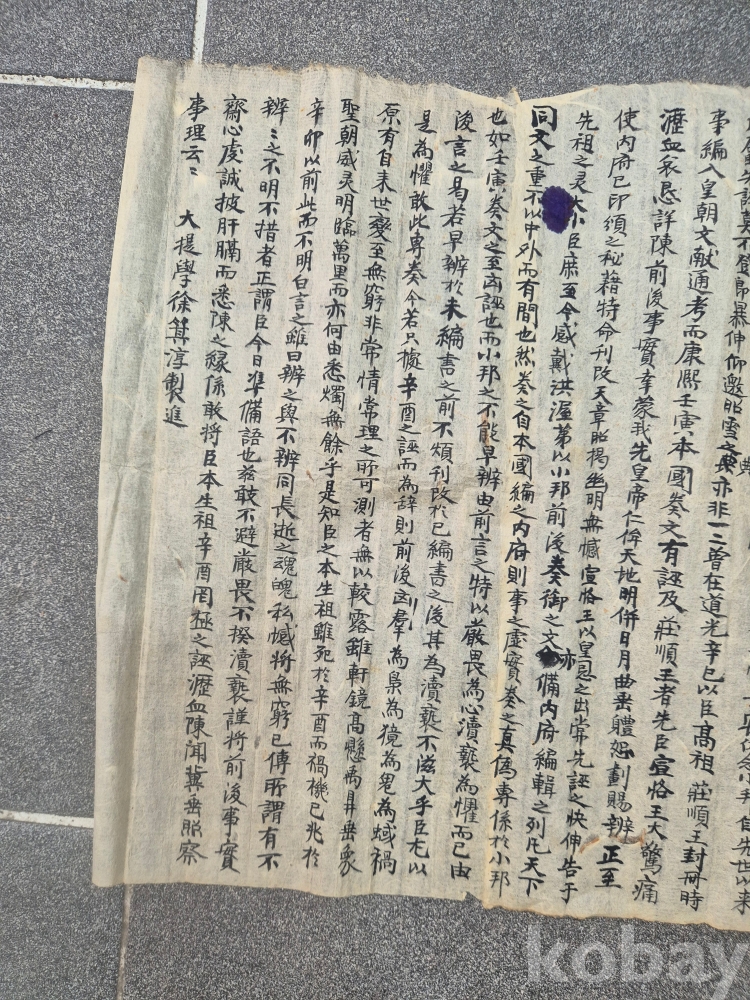 事編入皇朝文献通考而康熙壬寅本國奏文有誣及莊順王者先臣宣恪王大驚痛
瀝血哀懇詳陳前後事實幸蒙我先皇帝仁侔天地明併日月曲垂軆恕劃賜辨正至
使內府已印頒之秘藉特命刊改天章昭揭幽明無憾宣恪王以皇恩之出常先誣之快伸告于
先祖之灵大小臣庶至今感戴洪渥第以小邦前後奏御之文亦備內府編輯之列凡天下
同文之重不以中外而有間也然奏之自本國編之內府則事之虛實奏之真偽專係於小邦
也如壬寅奏文之至凶誣也而小邦之不能早辨由前言之特以嚴畏為心瀆褻為懼而已由
後言之曷若早辨於未編書之前不煩刊改於已編書之後其為瀆褻不滋大乎臣尤以
是為懼敢此專奏今若只據辛酉之誣而為辞則前後凶羣為梟為獍為鬼為蜮禍
原有自来世變至無窮非常情常理之所可測者無以較露雖軒鏡高懸禹鼎垂象
聖朝威灵明臨萬里而亦何由悉燭無餘乎是知臣之本生祖雖死於辛酉而禍機已兆於
辛卯以前此而不明白言之雖曰辨之與不辨同長逝之魂魄私憾將無窮已傳所謂有不
辨辨之不明不措者正謂臣今日準備語也玆敢不避嚴畏不揆瀆褻謹將前後事實
齋心虔誠披肝膈而悉陳之緣係敢將臣本生祖辛酉罔極之誣瀝血陳聞冀垂照察
事理云云
大提學徐箕淳製進
kobay